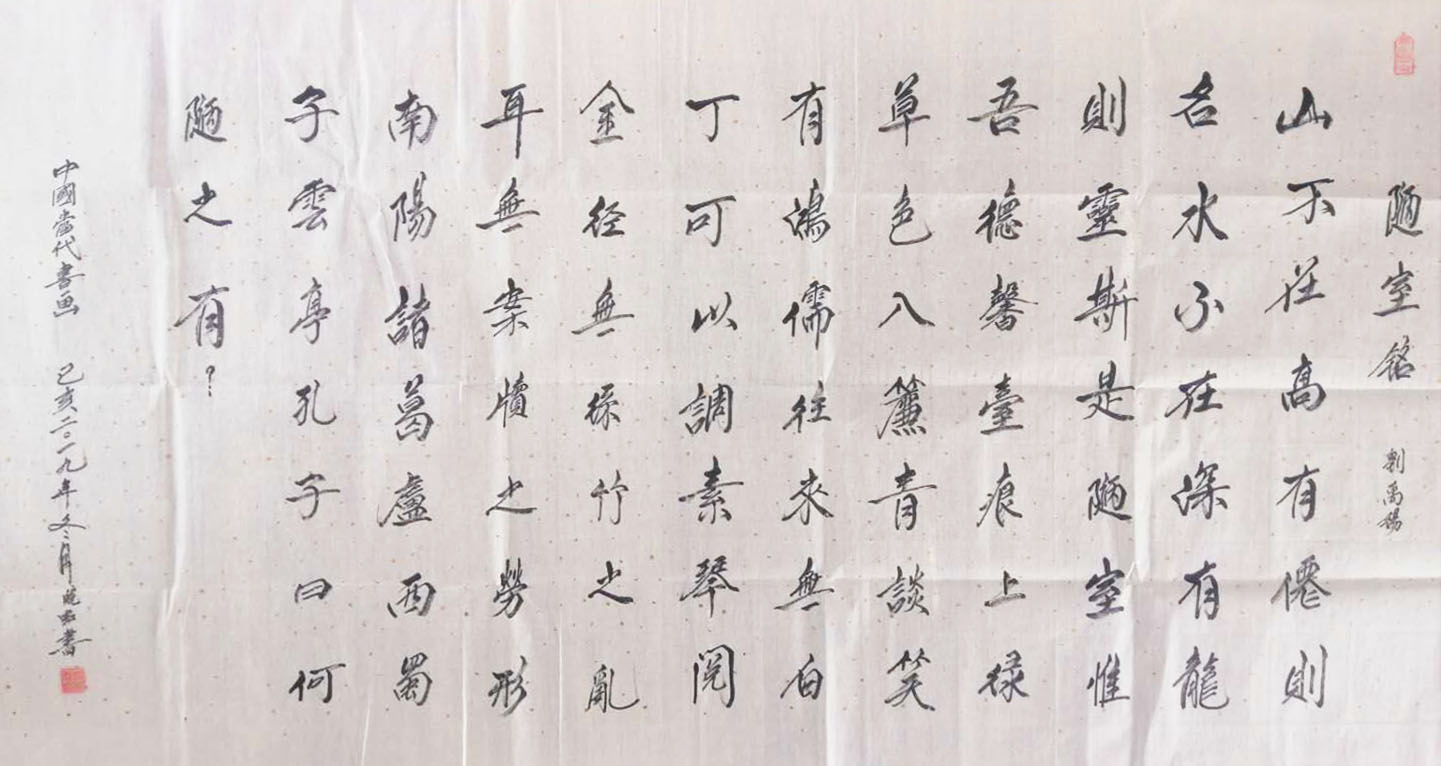 陋室銘 劉禹錫
山不在高有僊則
名水不在深有龍
則靈斯是陋室惟
吾德馨臺痕上緑
草色入簾青談笑
有鴻儒往來無白
丁可以調素琴閲
金径無絲竹之亂
耳無案牘之勞形
南陽諸葛盧西蜀
子雲亭孔子曰何
陋之有？
中國當代書画 己亥二〇一九年冬月 書